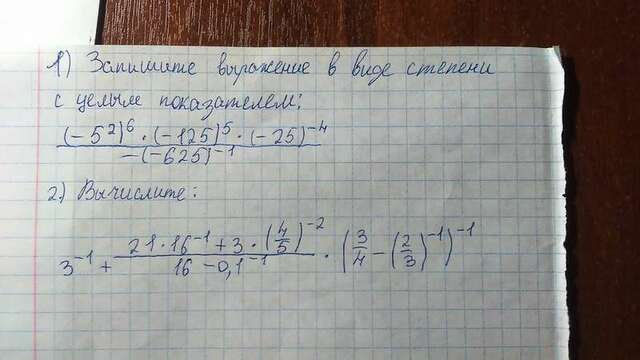 1) Запишите выражение в виде степени
с целым показателем:
(-5²)⁶ · (-125)⁵ · (-25)⁻⁴
-(-625)⁻¹
2) Вычислите:
3⁻¹ + (21·16⁻¹ + 3·(4/5)⁻²)/(16 - 0,1⁻¹) · (3/4 - (2/3)⁻¹)⁻¹